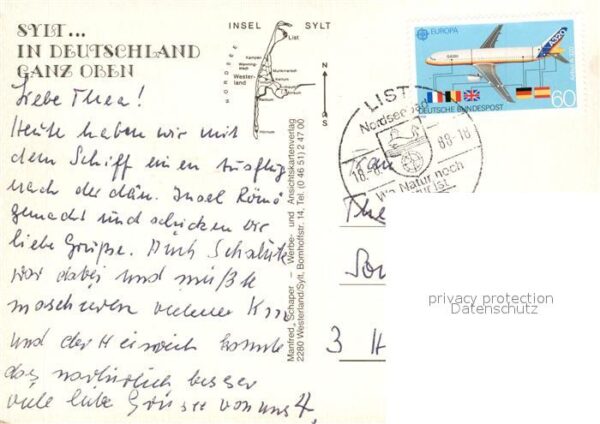 SYLT...
IN DEUTSCHLAND
GANZ OBEN
Liebe Thea!
Heute haben wir mit
dem Schiff einen Ausflug
nach der dän. Insel Römö
gemacht und schicken Dir
liebe Grüße. Auch
war dabei und mußte
marschieren
und der Heinrich konnte
das natürlich besser
viele liebe Grüsse von uns 4
INSEL SYLT
NORDSEE
List
Kampen
Westerland
Keitum
N
S
Manfred Schaper – Werbe- und Ansichtskartenverlag
2280 Westerland/Sylt, Bomhoffstr. 14, Tel. (0 46 51) 2 47 00
EUROPA
A320
60
DEUTSCHE BUNDESPOST
LIST
Nordseebad
88-18
Wo Natur noch
Natur ist
The
3 H
privacy protection
Datenschutz